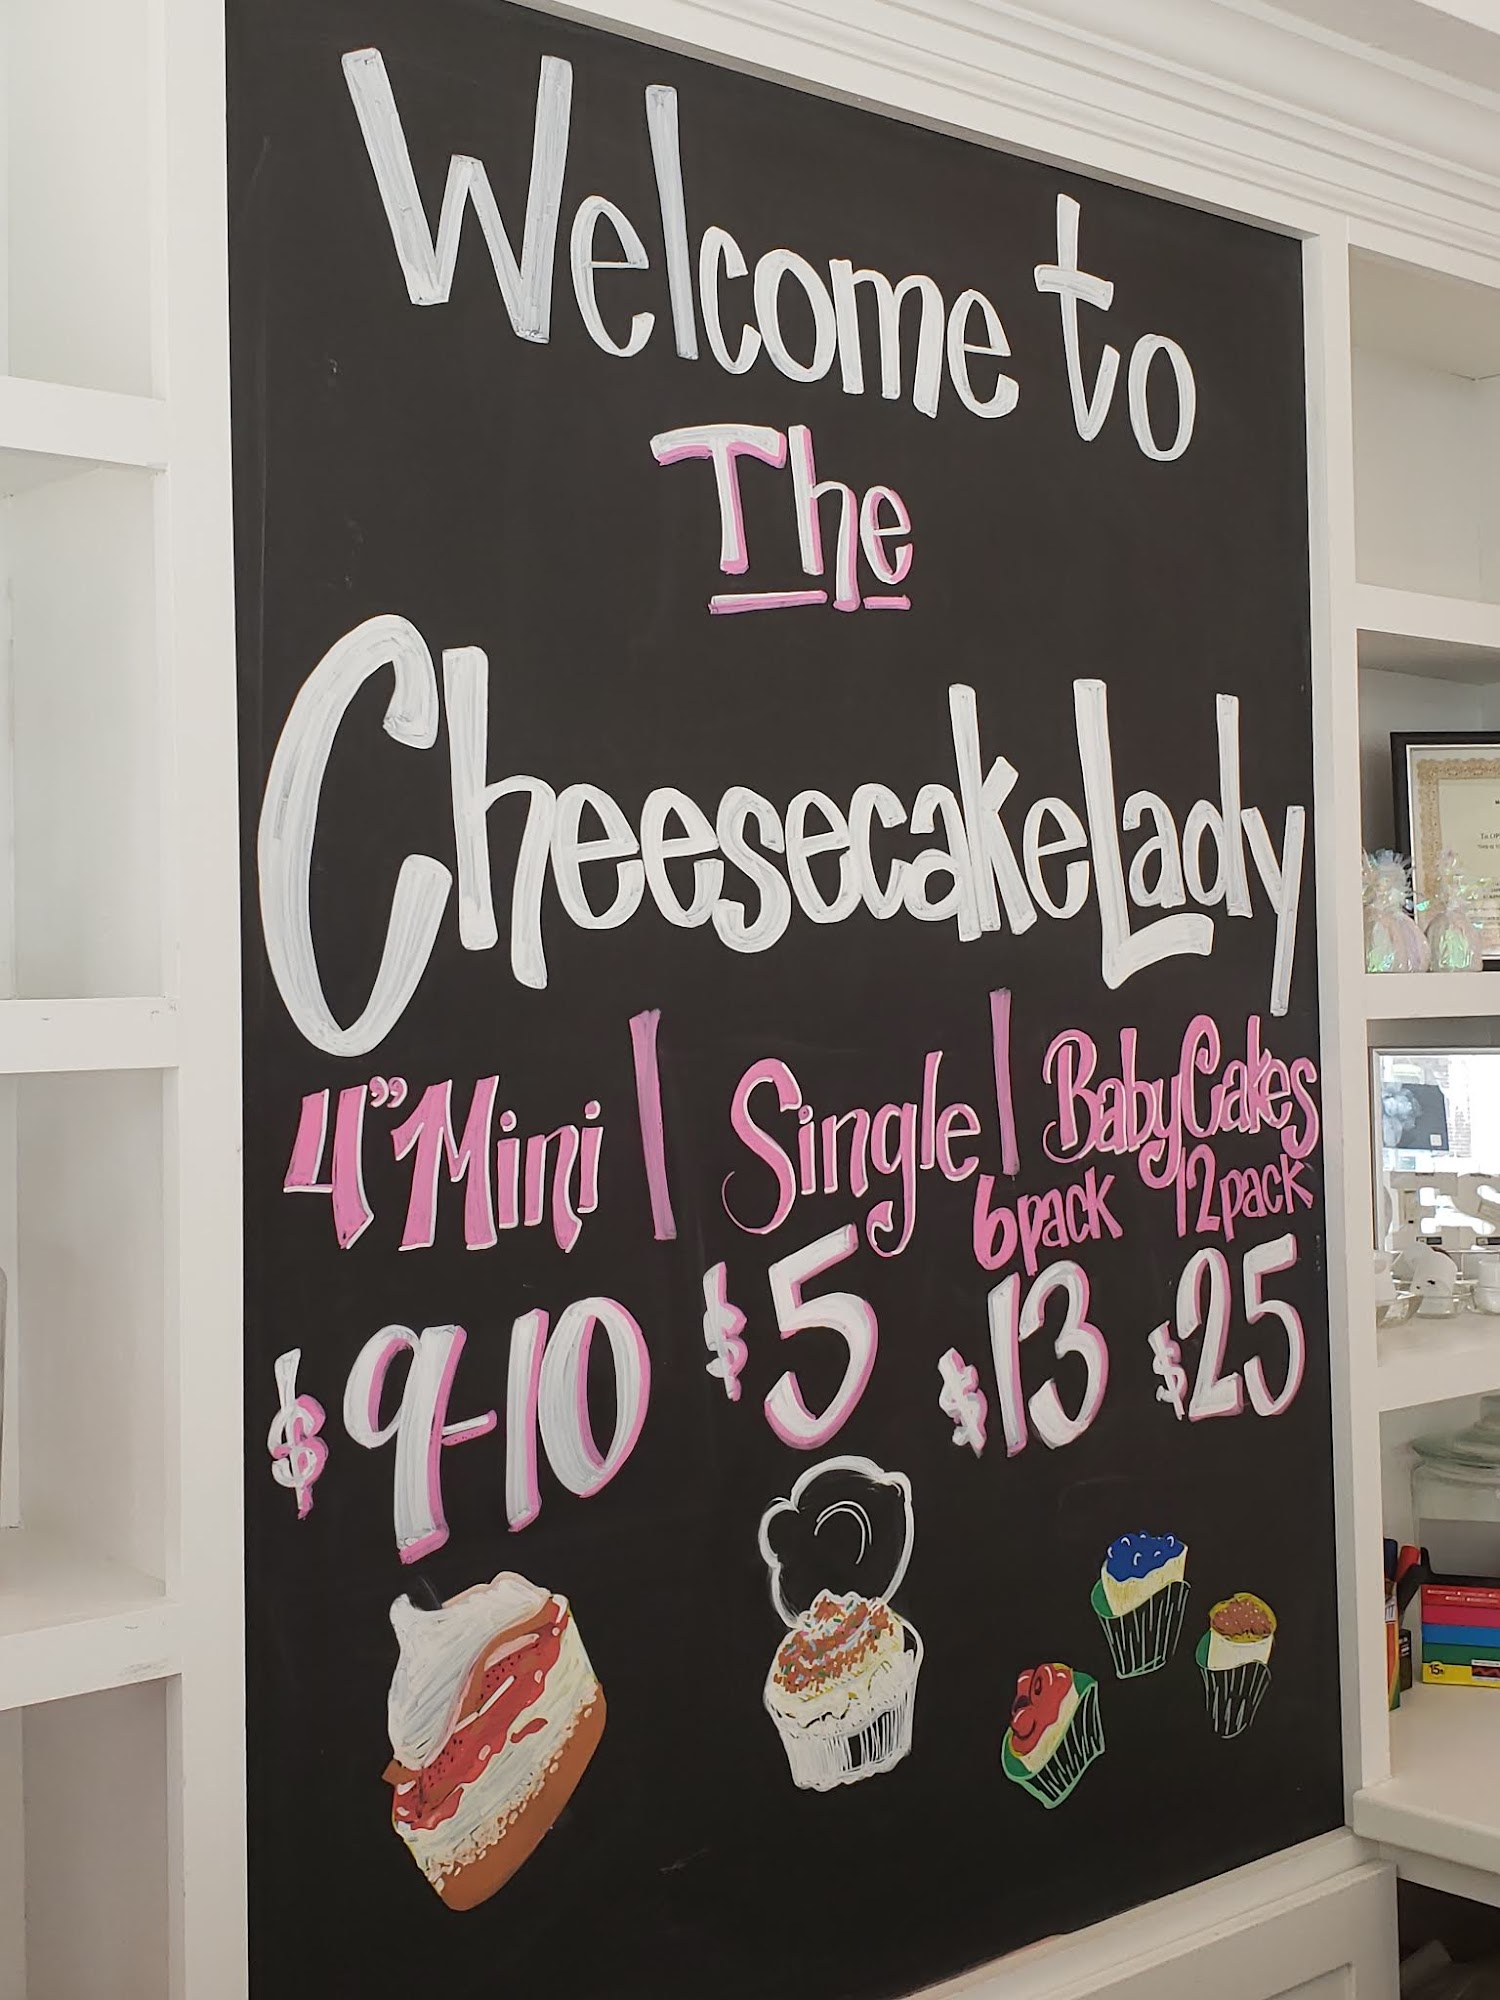 Welcome to
The
CheesecakeLady
4" Mini | Single | BabyCakes
6pack 12pack
$9-10 $5 $13 $25